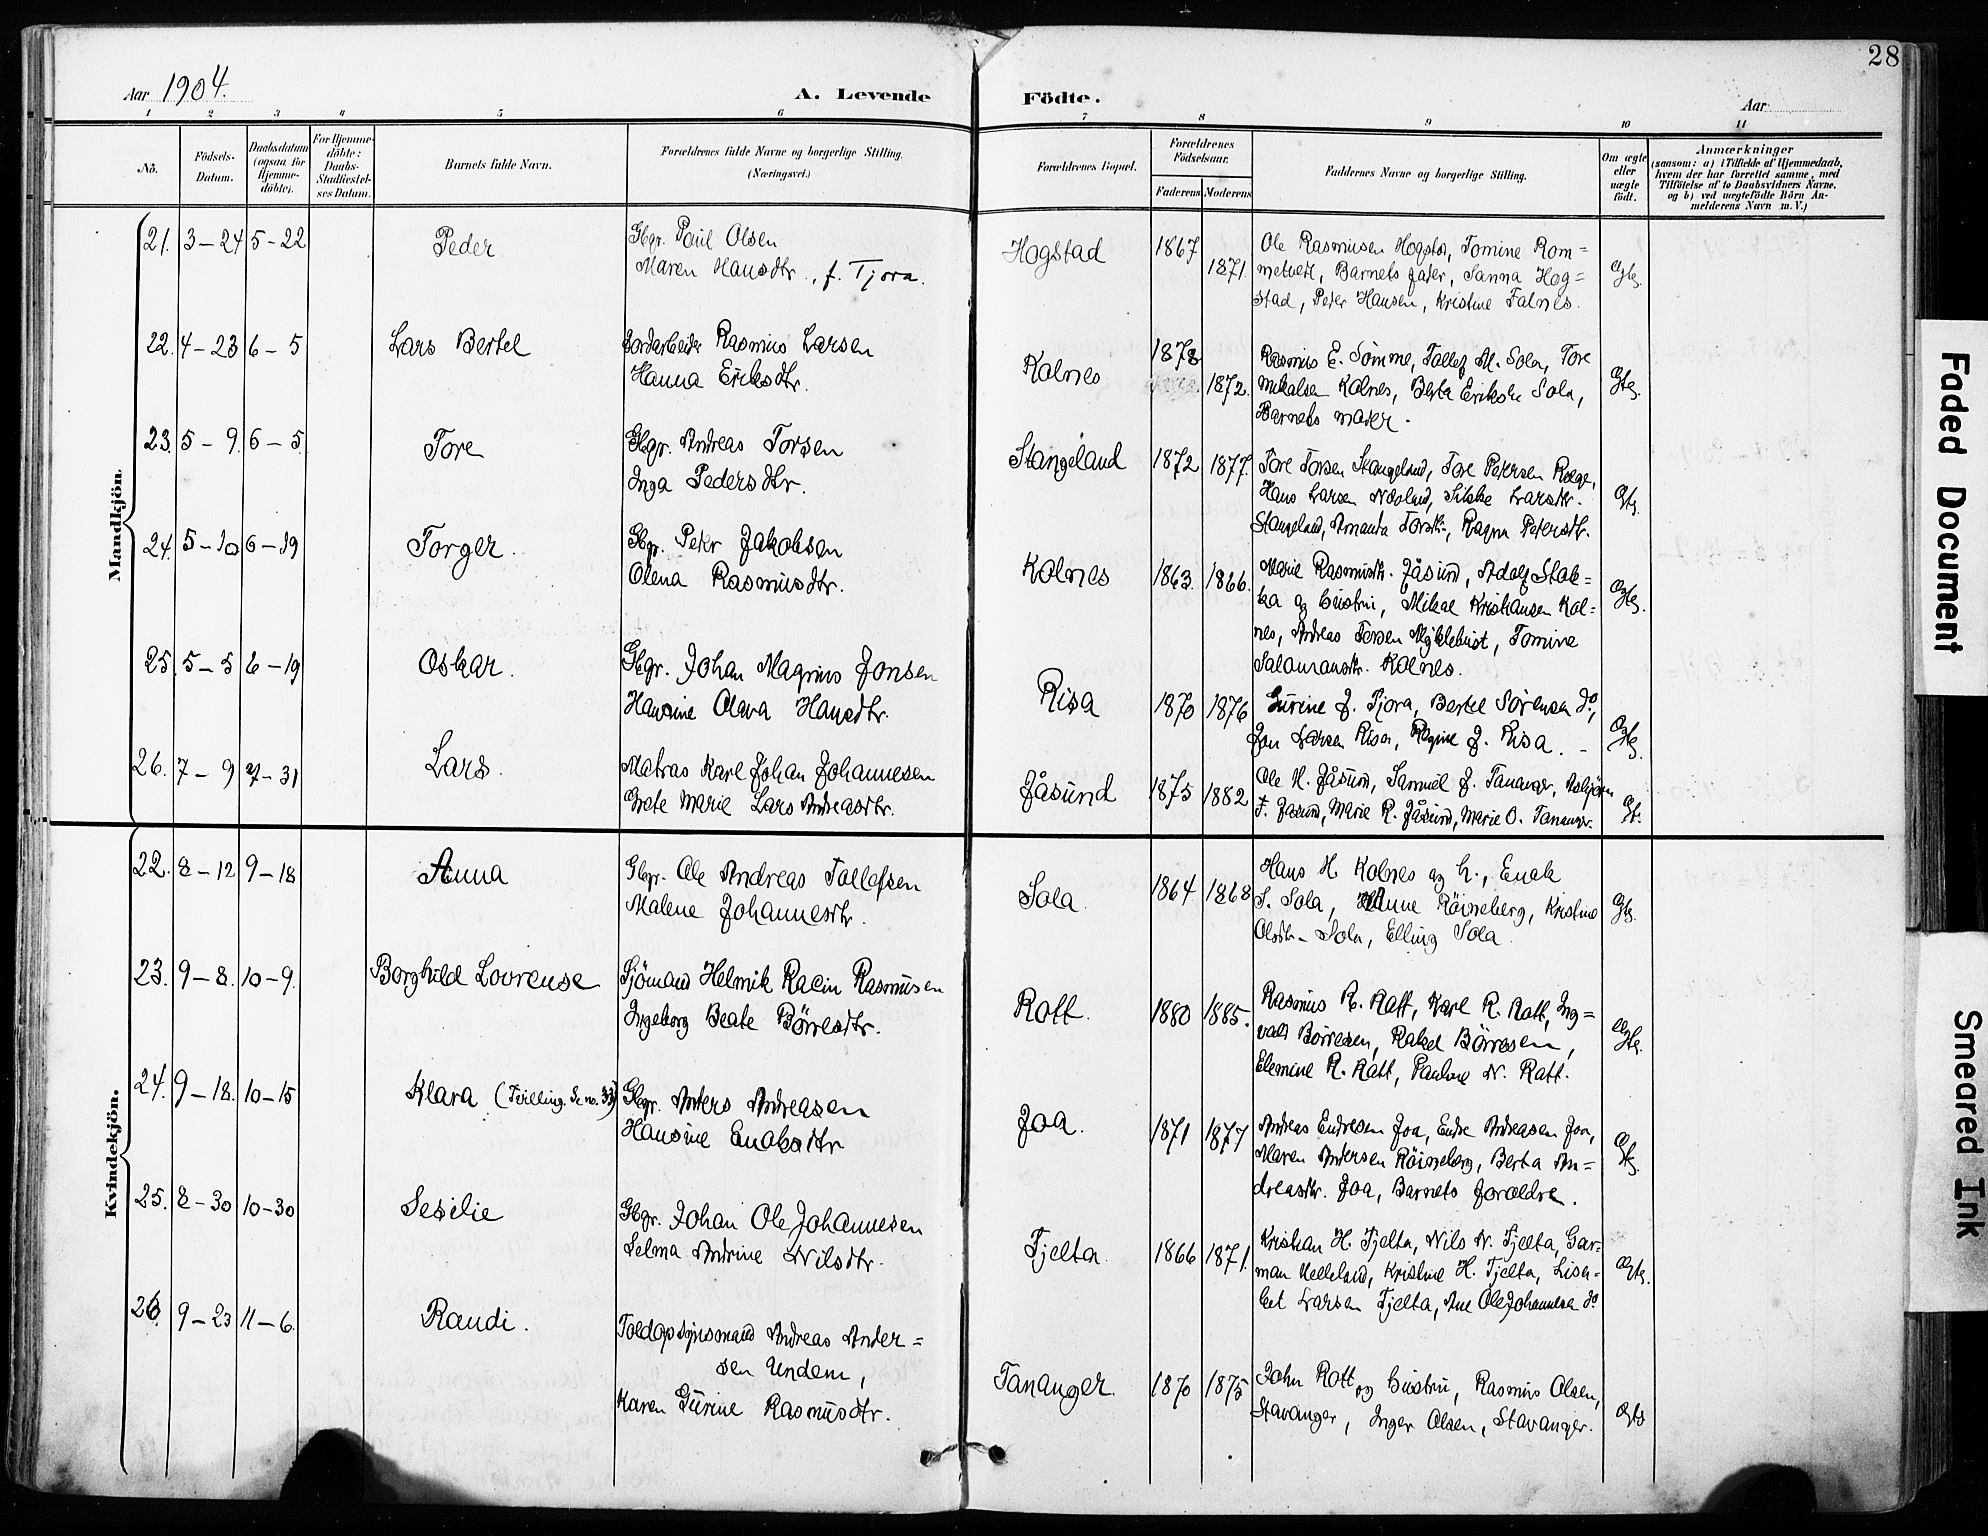 28
Aar 1904.
A. Levende Födte.
Aar
1 2 3 4 5 6 7 8 9 10 11
No.
Födsels-
Datum.
Daabsdatum
(ogsaa for
Hjemme-
döbte).
For Hjemme-
döbte:
Daabs-
Stadfæstel-
ses Datum.
Barnets fulde Navn.
Forældrenes fulde Navne og borgerlige Stilling.
(Næringsvei.)
Forældrenes Bopæl.
Forældrenes
Födselsaar.
Faderens Moderens
Faddernes Navne og borgerlige Stilling.
Om ægte
eller
uægte
födt.
Anmærkninger
(saasom: a) i Tilfælde af Hjemmedaab,
hvem der har forrettet samme, med
Tilföielse af to Daabsvidners Navne,
og b) ved uægtefödte Börn An-
melderens Navn m. V.)
Mandkjön.
21. 3-24 5-22 Peder
Gbgr. Paul Olsen
Maren Hansdtr., f. Tjora.
Hogstad 1867 1871
Ole Rasmusen Hogstad, Tomine Rom=
metvedt, Barnets fader, Sanna Hog=
stad, Peter Hansen, Kristine Falnes.
Ægte.
22. 4-23 6-5 Lars Bertel
Jordarbeider Rasmus Larsen
Hanna Eriksdtr.
Kolnes 1878 1872.
Rasmus E. Sömme, Tollef M. Sola, Tore
Mikalsen Kolnes, Berta Eriksdtr Sola,
Barnets moder.
Ægte.
23. 5-9. 6-5. Tore
Gbgr. Andreas Torsen
Inga Pedersdtr.
Stangeland 1872 1877.
Tore Torsen Stangeland, Tore Petersen Ræge,
Hans Larsen Stangeland, Amanda Torsdtr., Ragna Petersdtr.
Ægte.
24. 5-10 6-19 Torger.
Gbgr. Peter Jakobsen
Olena Rasmusdtr.
Kolnes 1863. 1866.
Marie Rasmusdtr. Jåsund, Adolf Stok=
ka og hustru, Mikal Kristiansen Kol=
nes, Andreas Torsen Myklebust, Tomine
Salamonsdtr. Kolnes.
Ægte.
25. 5-5 6-19 Oskar.
Gbgr. Johan Magnus Jonsen
Hansine Olava Hansdtr.
Risa 1870 1876
Gurine J. Tjora, Bertel Sörensen do,
Jon Larsen Risa, Regine J. Risa.
Ægte.
26. 7-9 7-31 Lars.
Matros Karl Johan Johannesen
Grete Marie Lars Andreasdtr.
Jåsund 1875 1882
Ole H. Jåsund, Samuel J. Tananger, Asbjörn
T. Jåsund, Marie R. Jåsund, Marie O. Tananger.
Ægte.
Kvindekjön.
22. 8-12 9-18 Anna
Gbgr. Ole Andreas Tollefsen
Malene Johannesdtr.
Sola. 1864 1868
Hans H. Kolnes og h., Enok
S. Sola, Anne Röineberg, Kristine
Olsdtr. Sola, Elling Sola.
Ægte.
23. 9-8. 10-9. Borghild Lovrense
Sjömand Helmik Racin Rasmusen
Ingeborg Beate Börresdtr.
Rott. 1880 1885.
Rasmus R. Rott, Karl R. Rott, Ing=
vald Börresen, Rakel Börresen,
Elemine R. Rott, Pauline N. Rott.
Ægte.
24. 9-18. 10-15 Klara (Tvilling. Se no. 33)
Gbgr. Anders Andreasen
Hansine Enoksdtr
Joa. 1871 1877
Andreas Endresen Joa, Endre Andreasen Joa,
Maren Andersen Röineberg, Berta An=
dreasdtr. Joa, Barnets forældre.
Ægte.
25. 8-30 10-30 Sesilie
Gbgr. Johan Ole Johannesen
Selma Andrine Nilsdtr.
Tjelta. 1866 1871.
Kristian H. Tjelta, Nils N. Tjelta, Gar=
man Melleland, Kristine H. Tjelta, Lisa=
bet Larsen Tjelta, Ane Ole Johannesen do
Ægte.
26. 9-23 11-6. Randi.
Toldopsynsmand Andreas Ander=
sen Undem,
Karen Gurine Rasmusdtr.
Tananger. 1870 1875
John Rott og hustru, Rasmus Olsen,
Stavanger, Inger Olsen, Stavanger.
Ægte
Faded Document
Smeared Ink